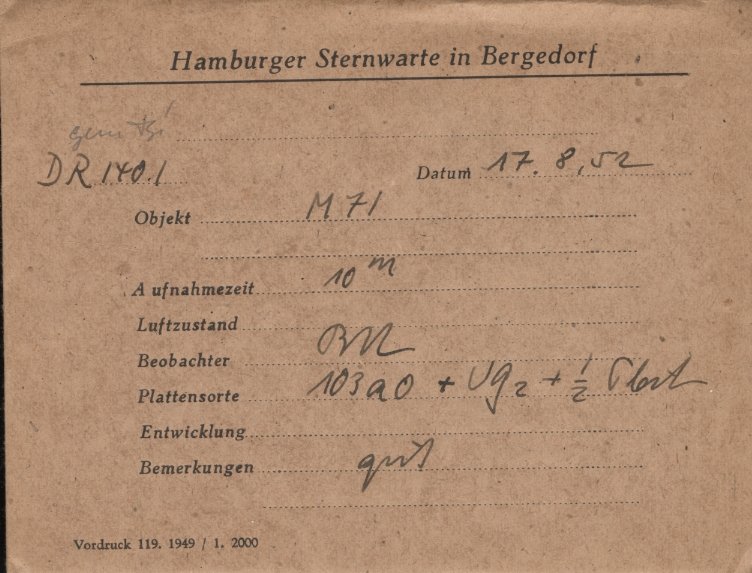 Hamburger Sternwarte in Bergedorf
DR 140.1
Datum 17. 8. 52
Objekt M 71
Aufnahmezeit 10 m
Luftzustand
Beobachter
Plattensorte 103a0 + UG2 + 1/2
Entwicklung
Bemerkungen gut
Vordruck 119. 1949 / 1. 2000